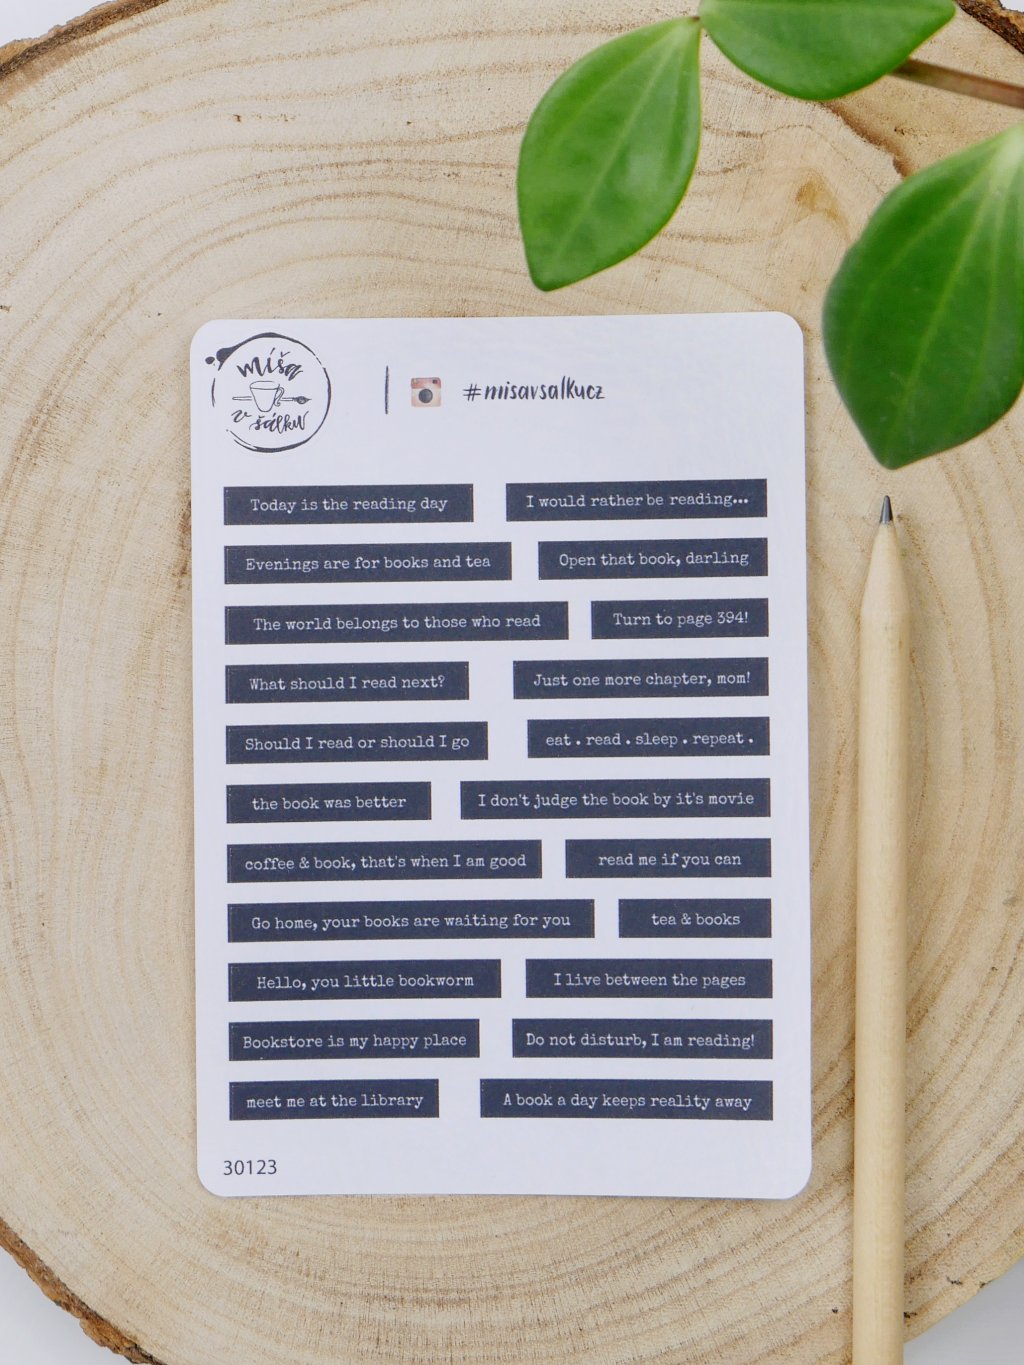 míša
v šálku
#misavsalkucz
Today is the reading day
I would rather be reading...
Evenings are for books and tea
Open that book, darling
The world belongs to those who read
Turn to page 394!
What should I read next?
Just one more chapter, mom!
Should I read or should I go
eat . read . sleep . repeat .
the book was better
I don't judge the book by it's movie
coffee & book, that's when I am good
read me if you can
Go home, your books are waiting for you
tea & books
Hello, you little bookworm
I live between the pages
Bookstore is my happy place
Do not disturb, I am reading!
meet me at the library
A book a day keeps reality away
30123